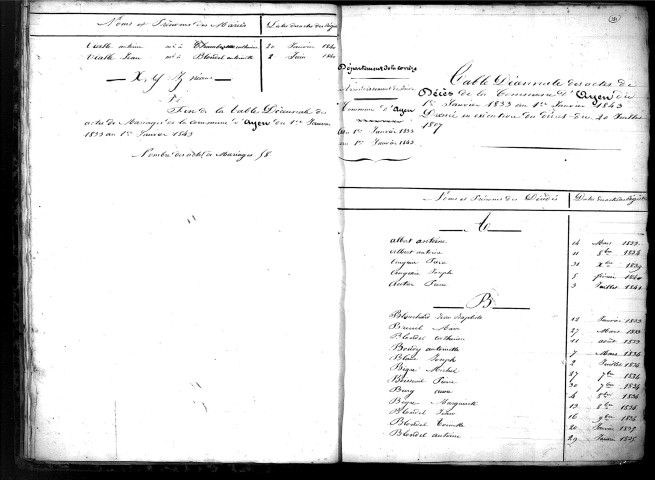 Noms et Prénoms des Mariés Dates des actes des Registres
Vialle antoine mié à 20 Janvier 1840
Vialle Jean mié à Blondel antoinette 2 Juin 1840
X, Y, Z néant
Fin de la table Décennale des
actes de Mariages de la commune d'Ayen du 1er Janvier
1833 au 1er Janvier 1843
Nombre des actes de Mariages 58
Département de la corrèze
Arrondissement de Brive
Commune d'Ayen
Du 1er Janvier 1833
au 1er Janvier 1843
Table Décennale des actes de
Décès de la Commune d'Ayen du
1er Janvier 1833 au 1er Janvier 1843
Dressé en exécution du décret du 20 Juillet
1807
Noms et Prénoms des Décédés Dates des actes des Registres
A
albert antoine 14 Mars 1833
albert antoine 11 8bre 1834
31 Xbre 1839
Joseph 5 février 1840
Pierre 3 Juillet 1842
B
Jean Baptiste 12 Janvier 1833
Marie 27 Mars 1833
Blondel catherine 11 août 1833
antoinette 7 Mars 1834
Joseph 2 Juillet 1834
Michel 27 7bre 1834
Pierre 30 7bre 1834
4 8bre 1834
Marguerite 13 8bre 1834
Blondel Jean 16 9bre 1834
Blondel 20 Janvier 1835
Blondel antoine 29 Janvier 1835